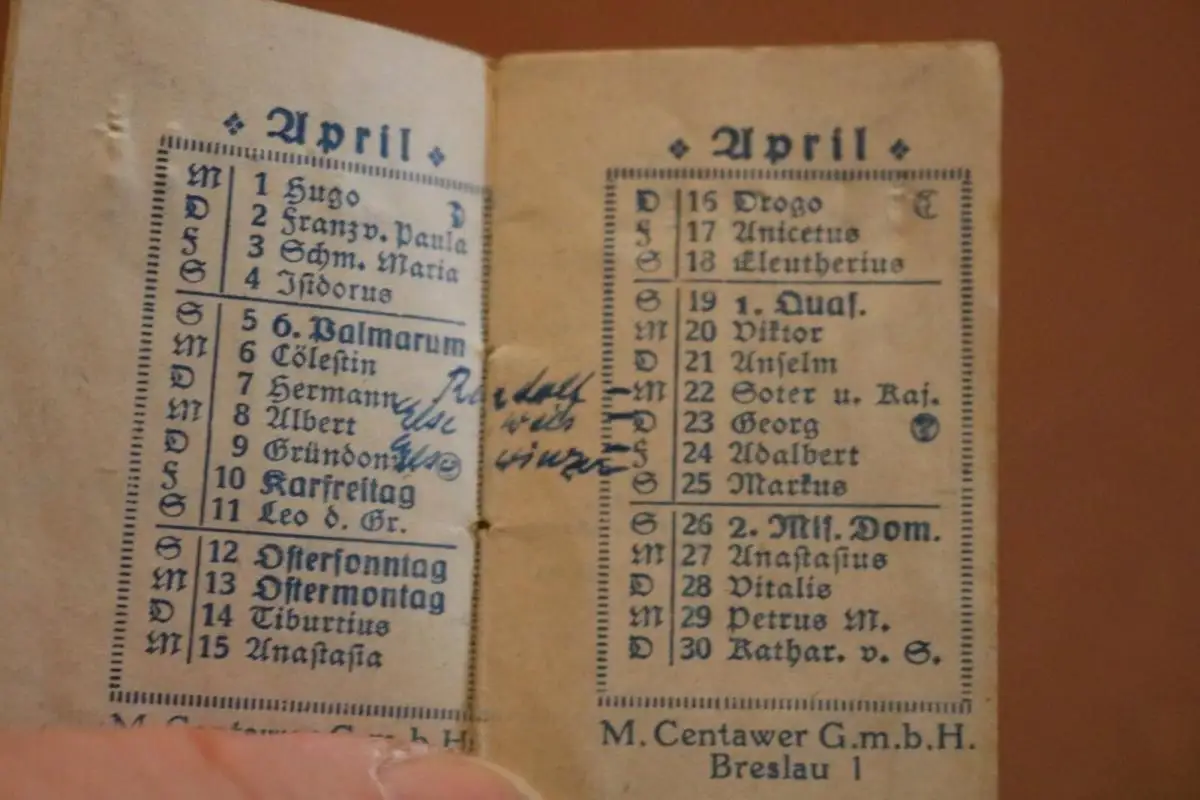 April
M 1 Hugo
D 2 Franz v. Paula
F 3 Schm. Maria
S 4 Isidorus
S 5 6. Palmarum
M 6 Cölestin
D 7 Hermann
M 8 Albert
D 9 Gründon
F 10 Karfreitag
S 11 Leo d. Gr.
S 12 Ostersonntag
M 13 Ostermontag
D 14 Tiburtius
M 15 Anastasia
M. Centawer G.m.b.H
April
D 16 Drogo
F 17 Anicetus
S 18 Eleutherius
S 19 1. Quas.
M 20 Viktor
D 21 Anselm
M 22 Soter u. Kaj.
D 23 Georg
F 24 Adalbert
S 25 Markus
S 26 2. Mis. Dom.
M 27 Anastasius
D 28 Vitalis
M 29 Petrus M.
D 30 Kathar. v. S.
M. Centawer G.m.b.H.
Breslau 1